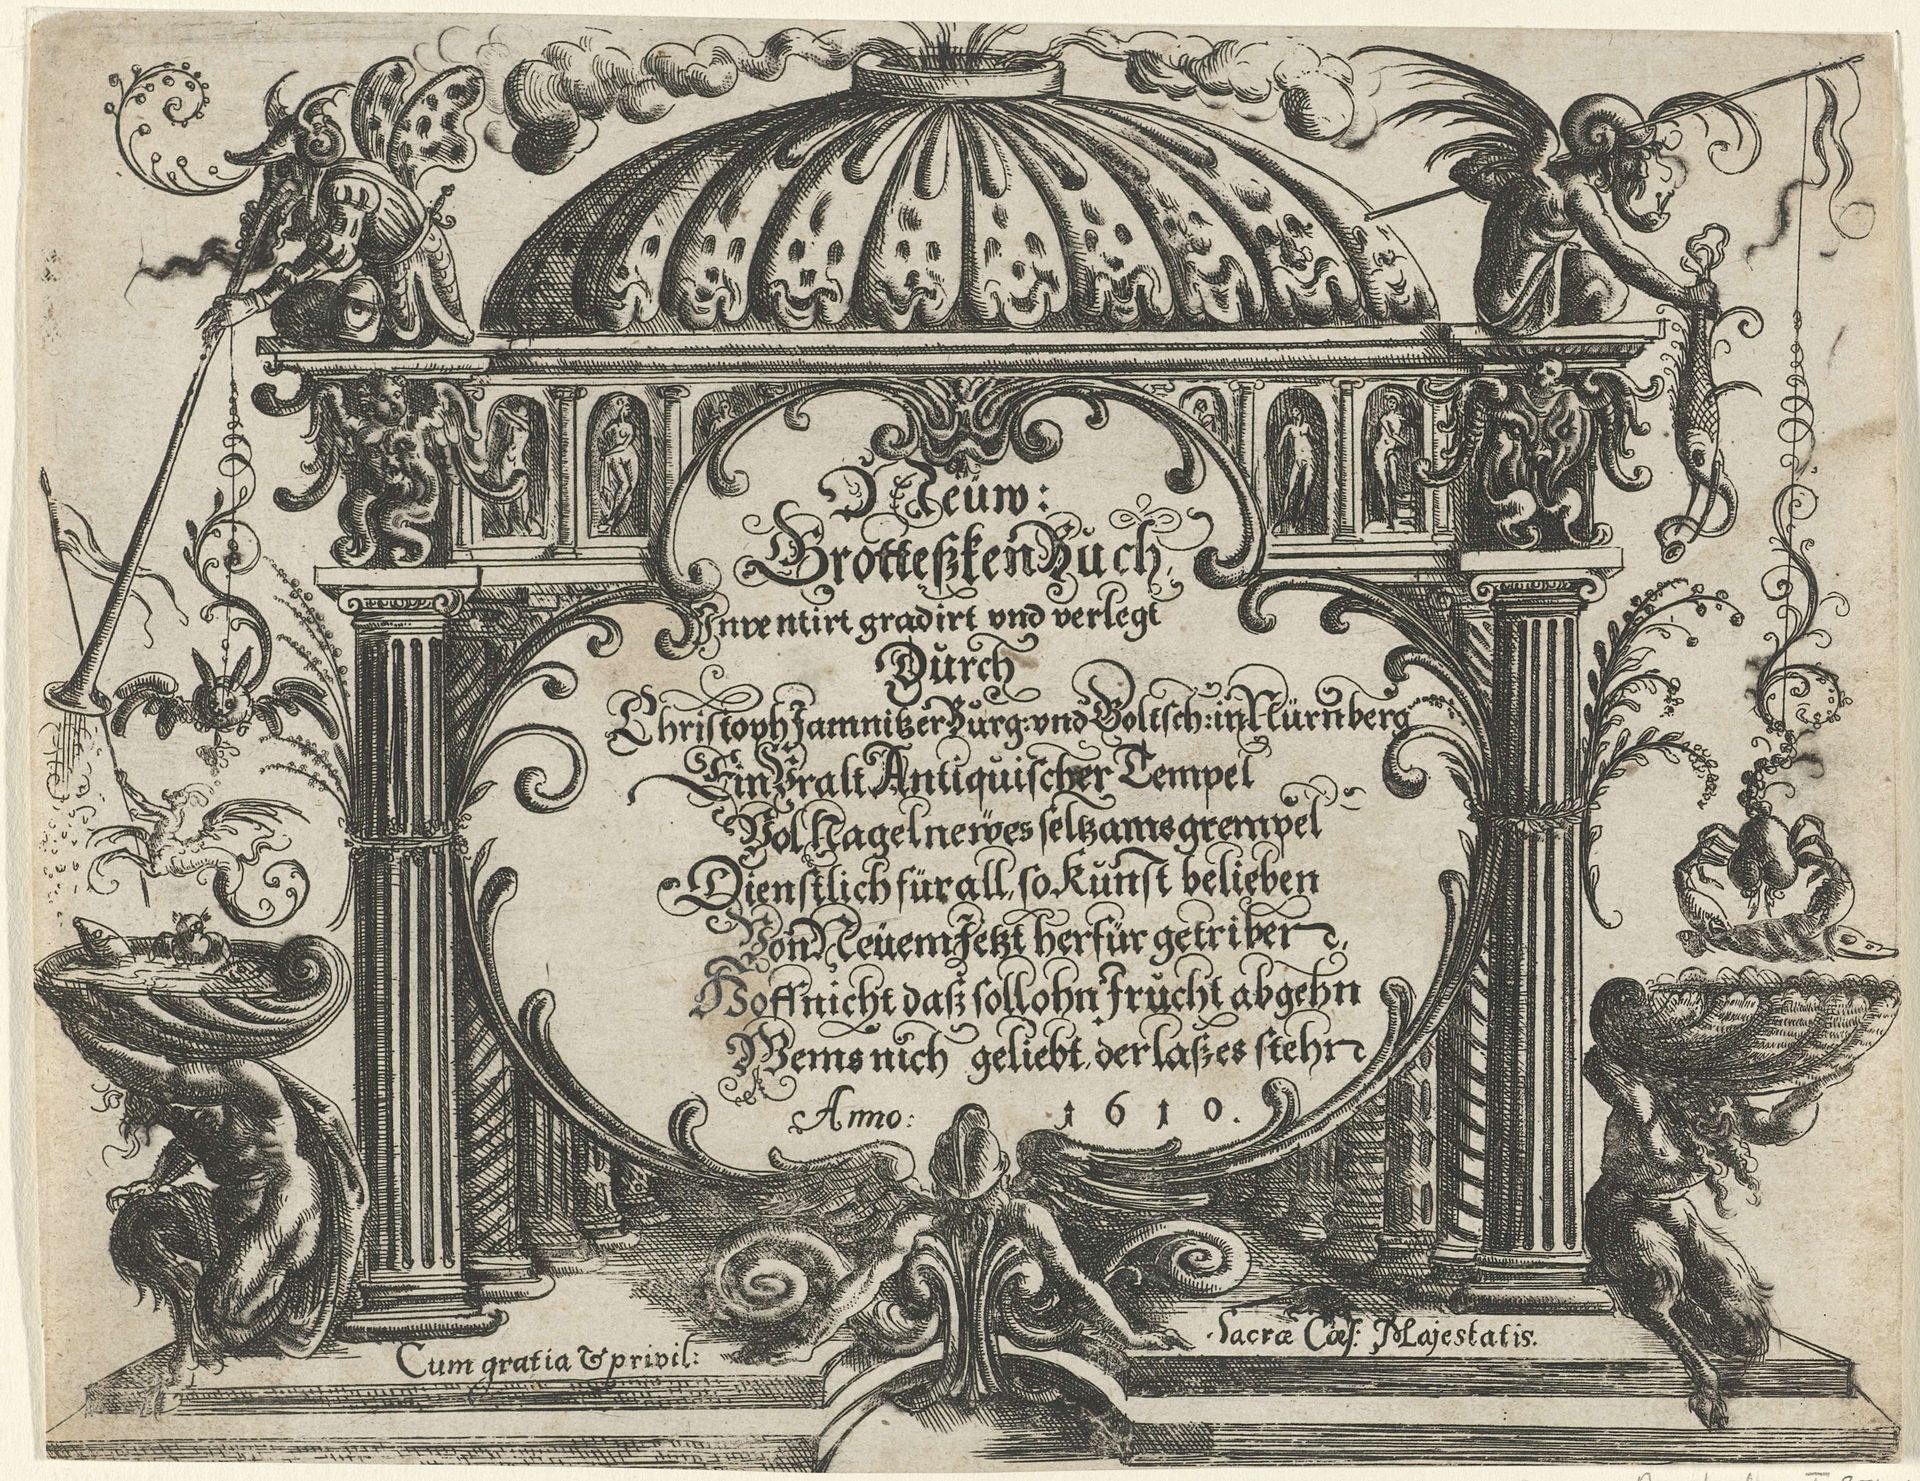 Neüw:
Grotteßken Buch.
Inventirt gradirt vnd verlegt
Durch
Christoph Jamnitzer Burg: vnd Goltsch: in Nürnberg
Ein Vralt Antiquischer Tempel
Vol Nagelnewes seltzams grempel
Dienstlich für all, so Kunst belieben
Von Neüem Jetzt herfür getriben
Hoff nicht daß soll ohn Frucht abgehn
Wems nich geliebt, der laß es stehn
Anno: 1610.
Cum gratia & privil: Sacræ Cæs: Majestatis.